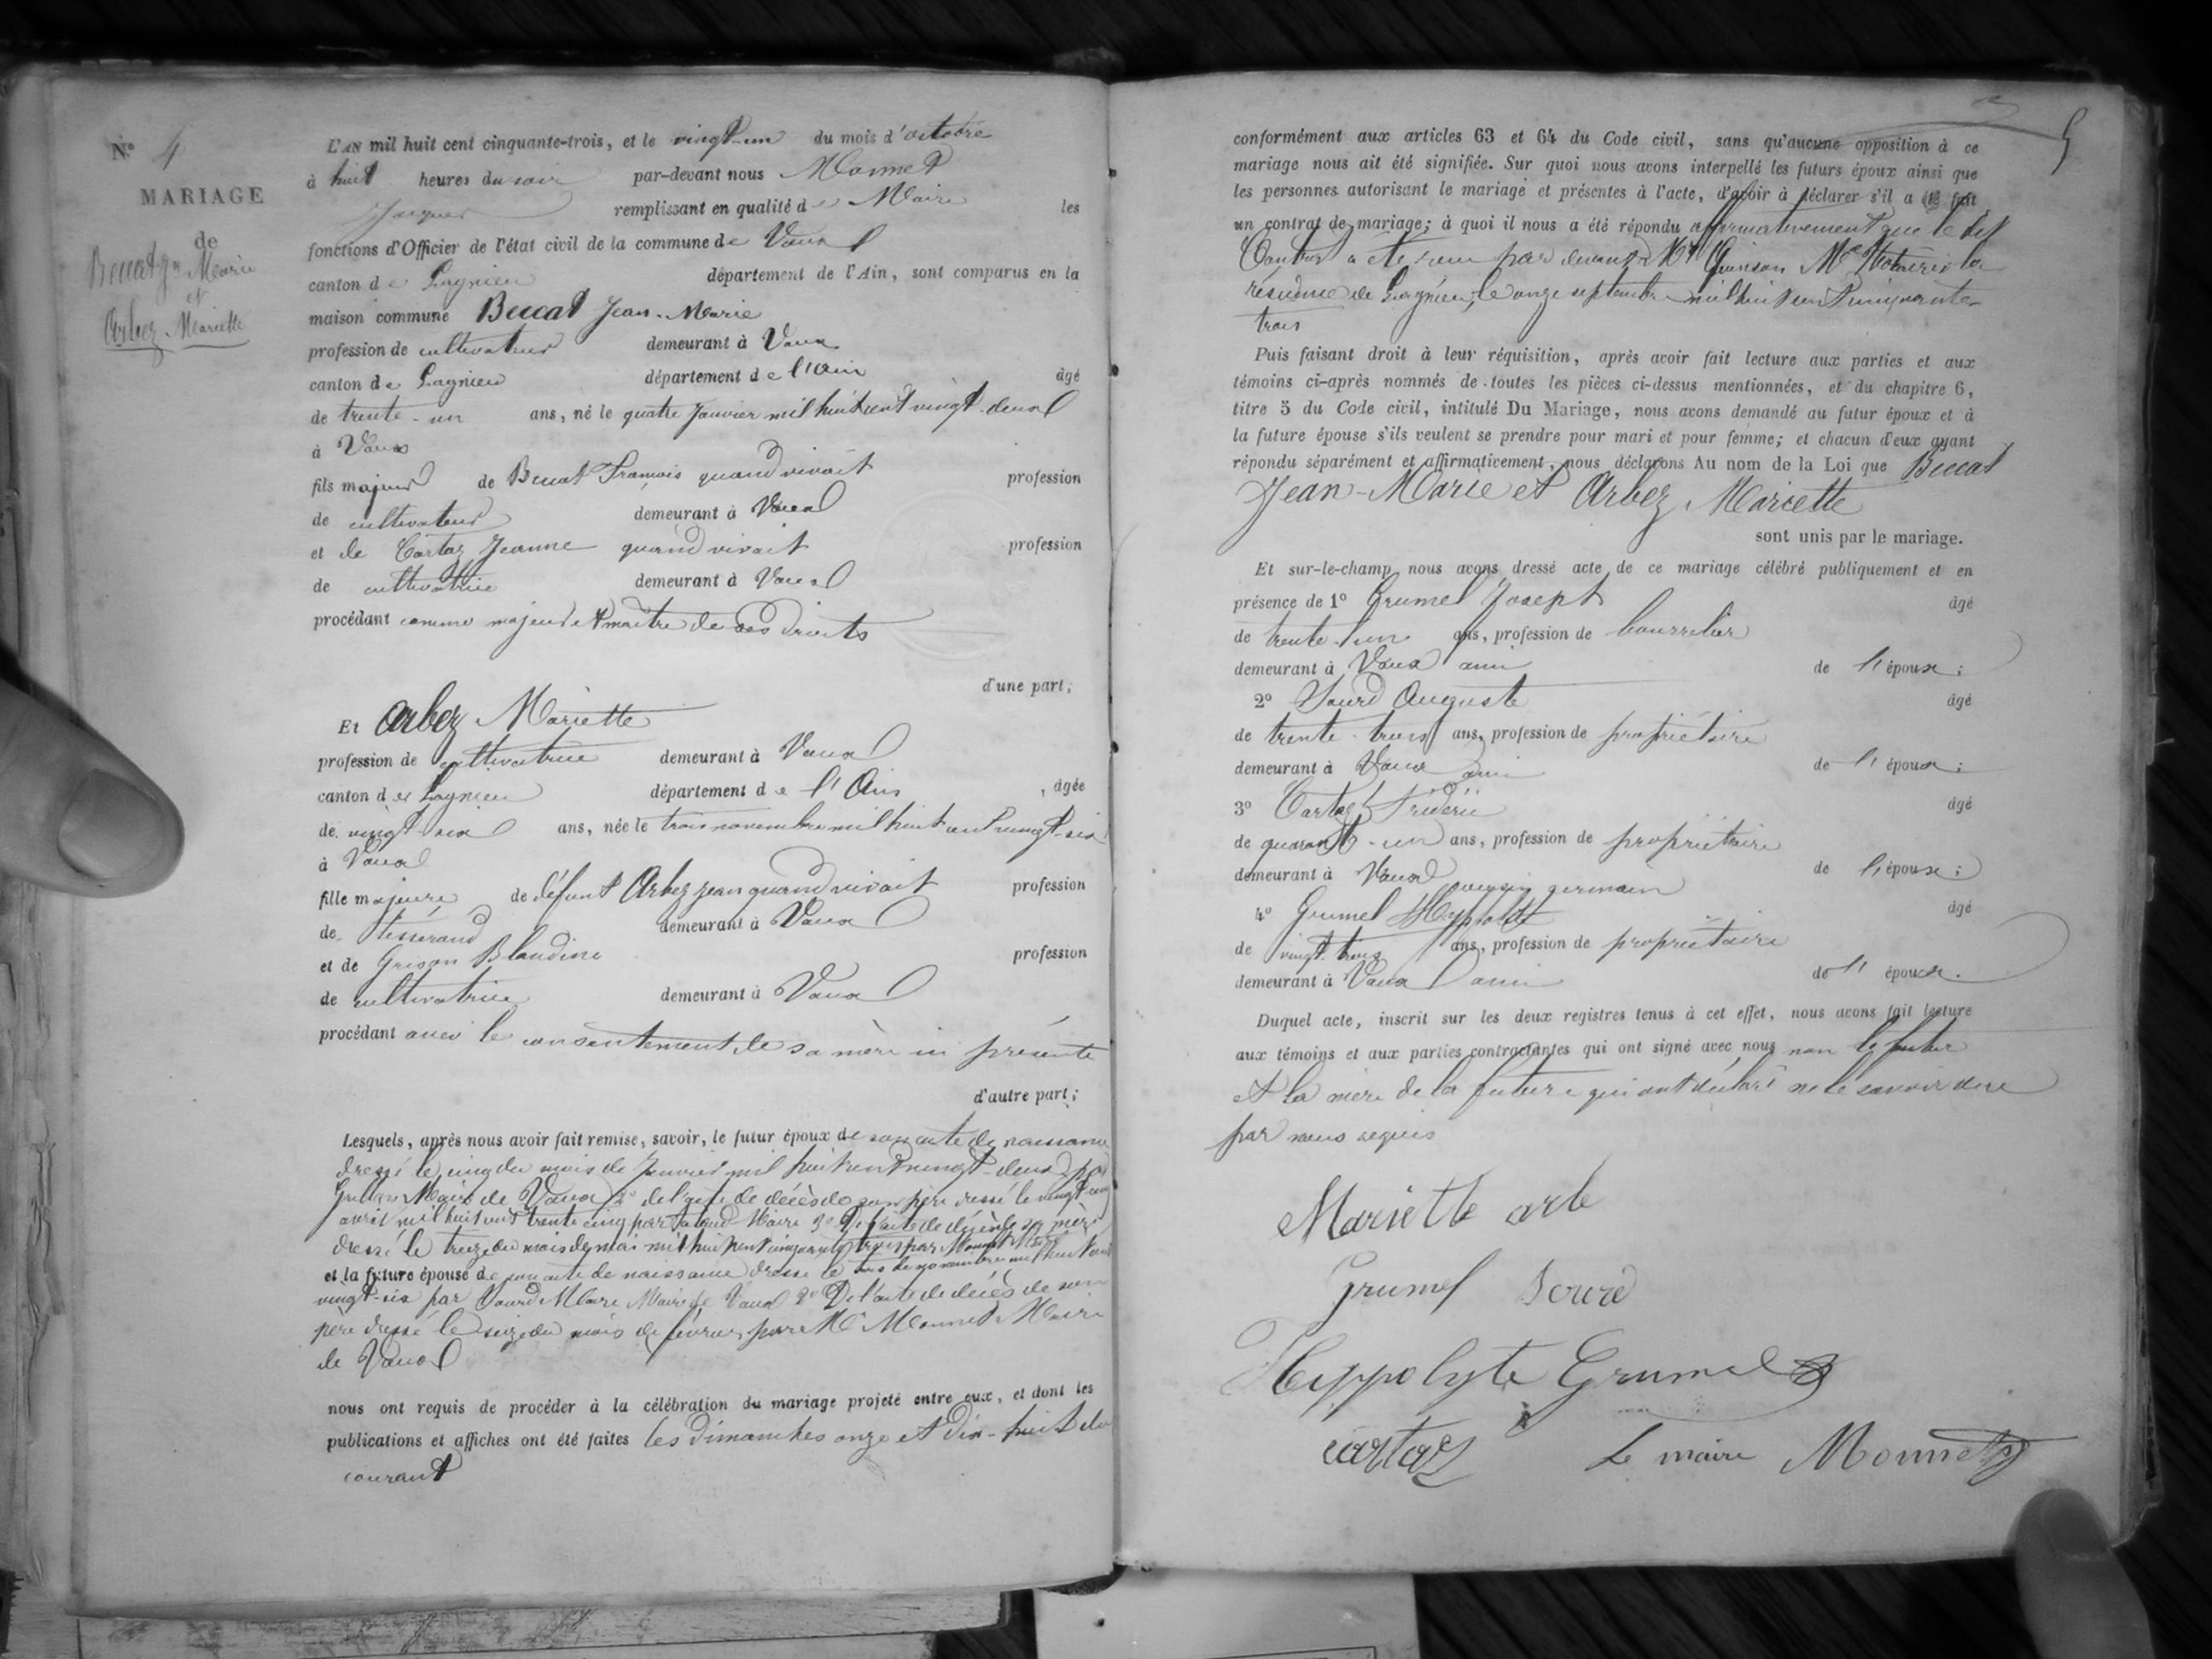 N° 4
MARIAGE
de
Beccat Jn Marie
et
Arbez Mariette
L'AN mil huit cent cinquante-trois, et le vingt-un du mois d'octobre
à huit heures du soir par-devant nous Monnet
Jacques remplissant en qualité de Maire les
fonctions d'Officier de l'état civil de la commune de Vaux
canton de Lagnieu département de l'Ain, sont comparus en la
maison commune Beccat Jean-Marie
profession de cultivateur demeurant à Vaux
canton de Lagnieu département de l'Ain âgé
de trente-un ans, né le quatre Janvier mil huit cent vingt-deux
à Vaux
fils majeur de Beccat François quand vivait profession
de cultivateur demeurant à Vaux
et de Cartaz Jeanne quand vivait profession
de cultivatrice demeurant à Vaux
procédant comme majeur et maître de ses droits
d'une part;
Et Arbez Mariette
profession de cultivatrice demeurant à Vaux
canton de Lagnieu département de l'Ain, âgée
de vingt-six ans, née le trois novembre mil huit cent vingt-six
à Vaux
fille majeure de défunt Arbez Jean quand vivait profession
de tisserand demeurant à Vaux
et de Grison Blandine profession
de cultivatrice demeurant à Vaux
procédant avec le consentement de sa mère ici présente
d'autre part;
Lesquels, après nous avoir fait remise, savoir, le futur époux de son acte de naissance
dressé le cinq du mois de Janvier mil huit cent vingt-deux par
Maire de Vaux 2° de l'acte de décès de son père dressé le vingt cinq
avril mil huit cent trente cinq par Maire 3° De l'acte de décès de sa mère
dressé le treize du mois de mai mil huit cent cinquante trois par Monnet Maire
et la future épouse de son acte de naissance dressé le trois de novembre mil huit cent
vingt-six par Sourd Maire de Vaux 2° De l'acte de décès de son
père dressé le seize du mois de février par Mr Monnet Maire
de Vaux
nous ont requis de procéder à la célébration du mariage projeté entre eux, et dont les
publications et affiches ont été faites les dimanches onze et dix-huit du
courant
5
conformément aux articles 63 et 64 du Code civil, sans qu'aucune opposition à ce
mariage nous ait été signifiée. Sur quoi nous avons interpellé les futurs époux ainsi que
les personnes autorisant le mariage et présentes à l'acte, d'avoir à déclarer s'il a été fait
un contrat de mariage; à quoi il nous a été répondu affirmativement que le dit
Contrat a été reçu par devant Mr Quinson Me Notaire à la
résidence de Lagnieu, le onze septembre mil huit cent cinquante-
trois
Puis faisant droit à leur réquisition, après avoir fait lecture aux parties et aux
témoins ci-après nommés de toutes les pièces ci-dessus mentionnées, et du chapitre 6,
titre 5 du Code civil, intitulé Du Mariage, nous avons demandé au futur époux et à
la future épouse s'ils veulent se prendre pour mari et pour femme; et chacun d'eux ayant
répondu séparément et affirmativement, nous déclarons Au nom de la Loi que Beccat
Jean-Marie et Arbez Mariette
sont unis par le mariage.
Et sur-le-champ nous avons dressé acte de ce mariage célébré publiquement et en
présence de 1° Grumel Joseph âgé
de trente-un ans, profession de bourrelier
demeurant à Vaux ami de l'époux;
2° Sourd Auguste âgé
de trente-trois ans, profession de propriétaire
demeurant à Vaux ami de l'époux;
3° Cartaz Frédéric âgé
de quarante-un ans, profession de propriétaire
demeurant à Vaux cousin germain de l'époux;
4° Grumel Hyppolite âgé
de vingt-trois ans, profession de propriétaire
demeurant à Vaux ami de l'époux.
Duquel acte, inscrit sur les deux registres tenus à cet effet, nous avons fait lecture
aux témoins et aux parties contractantes qui ont signé avec nous non le futur
et la mère de la future qui ont déclaré ne le savoir de ce
par nous requis
Mariette arb
Grumel Sourd
Hippolyte Grumel
Cartaz Le maire Monnet